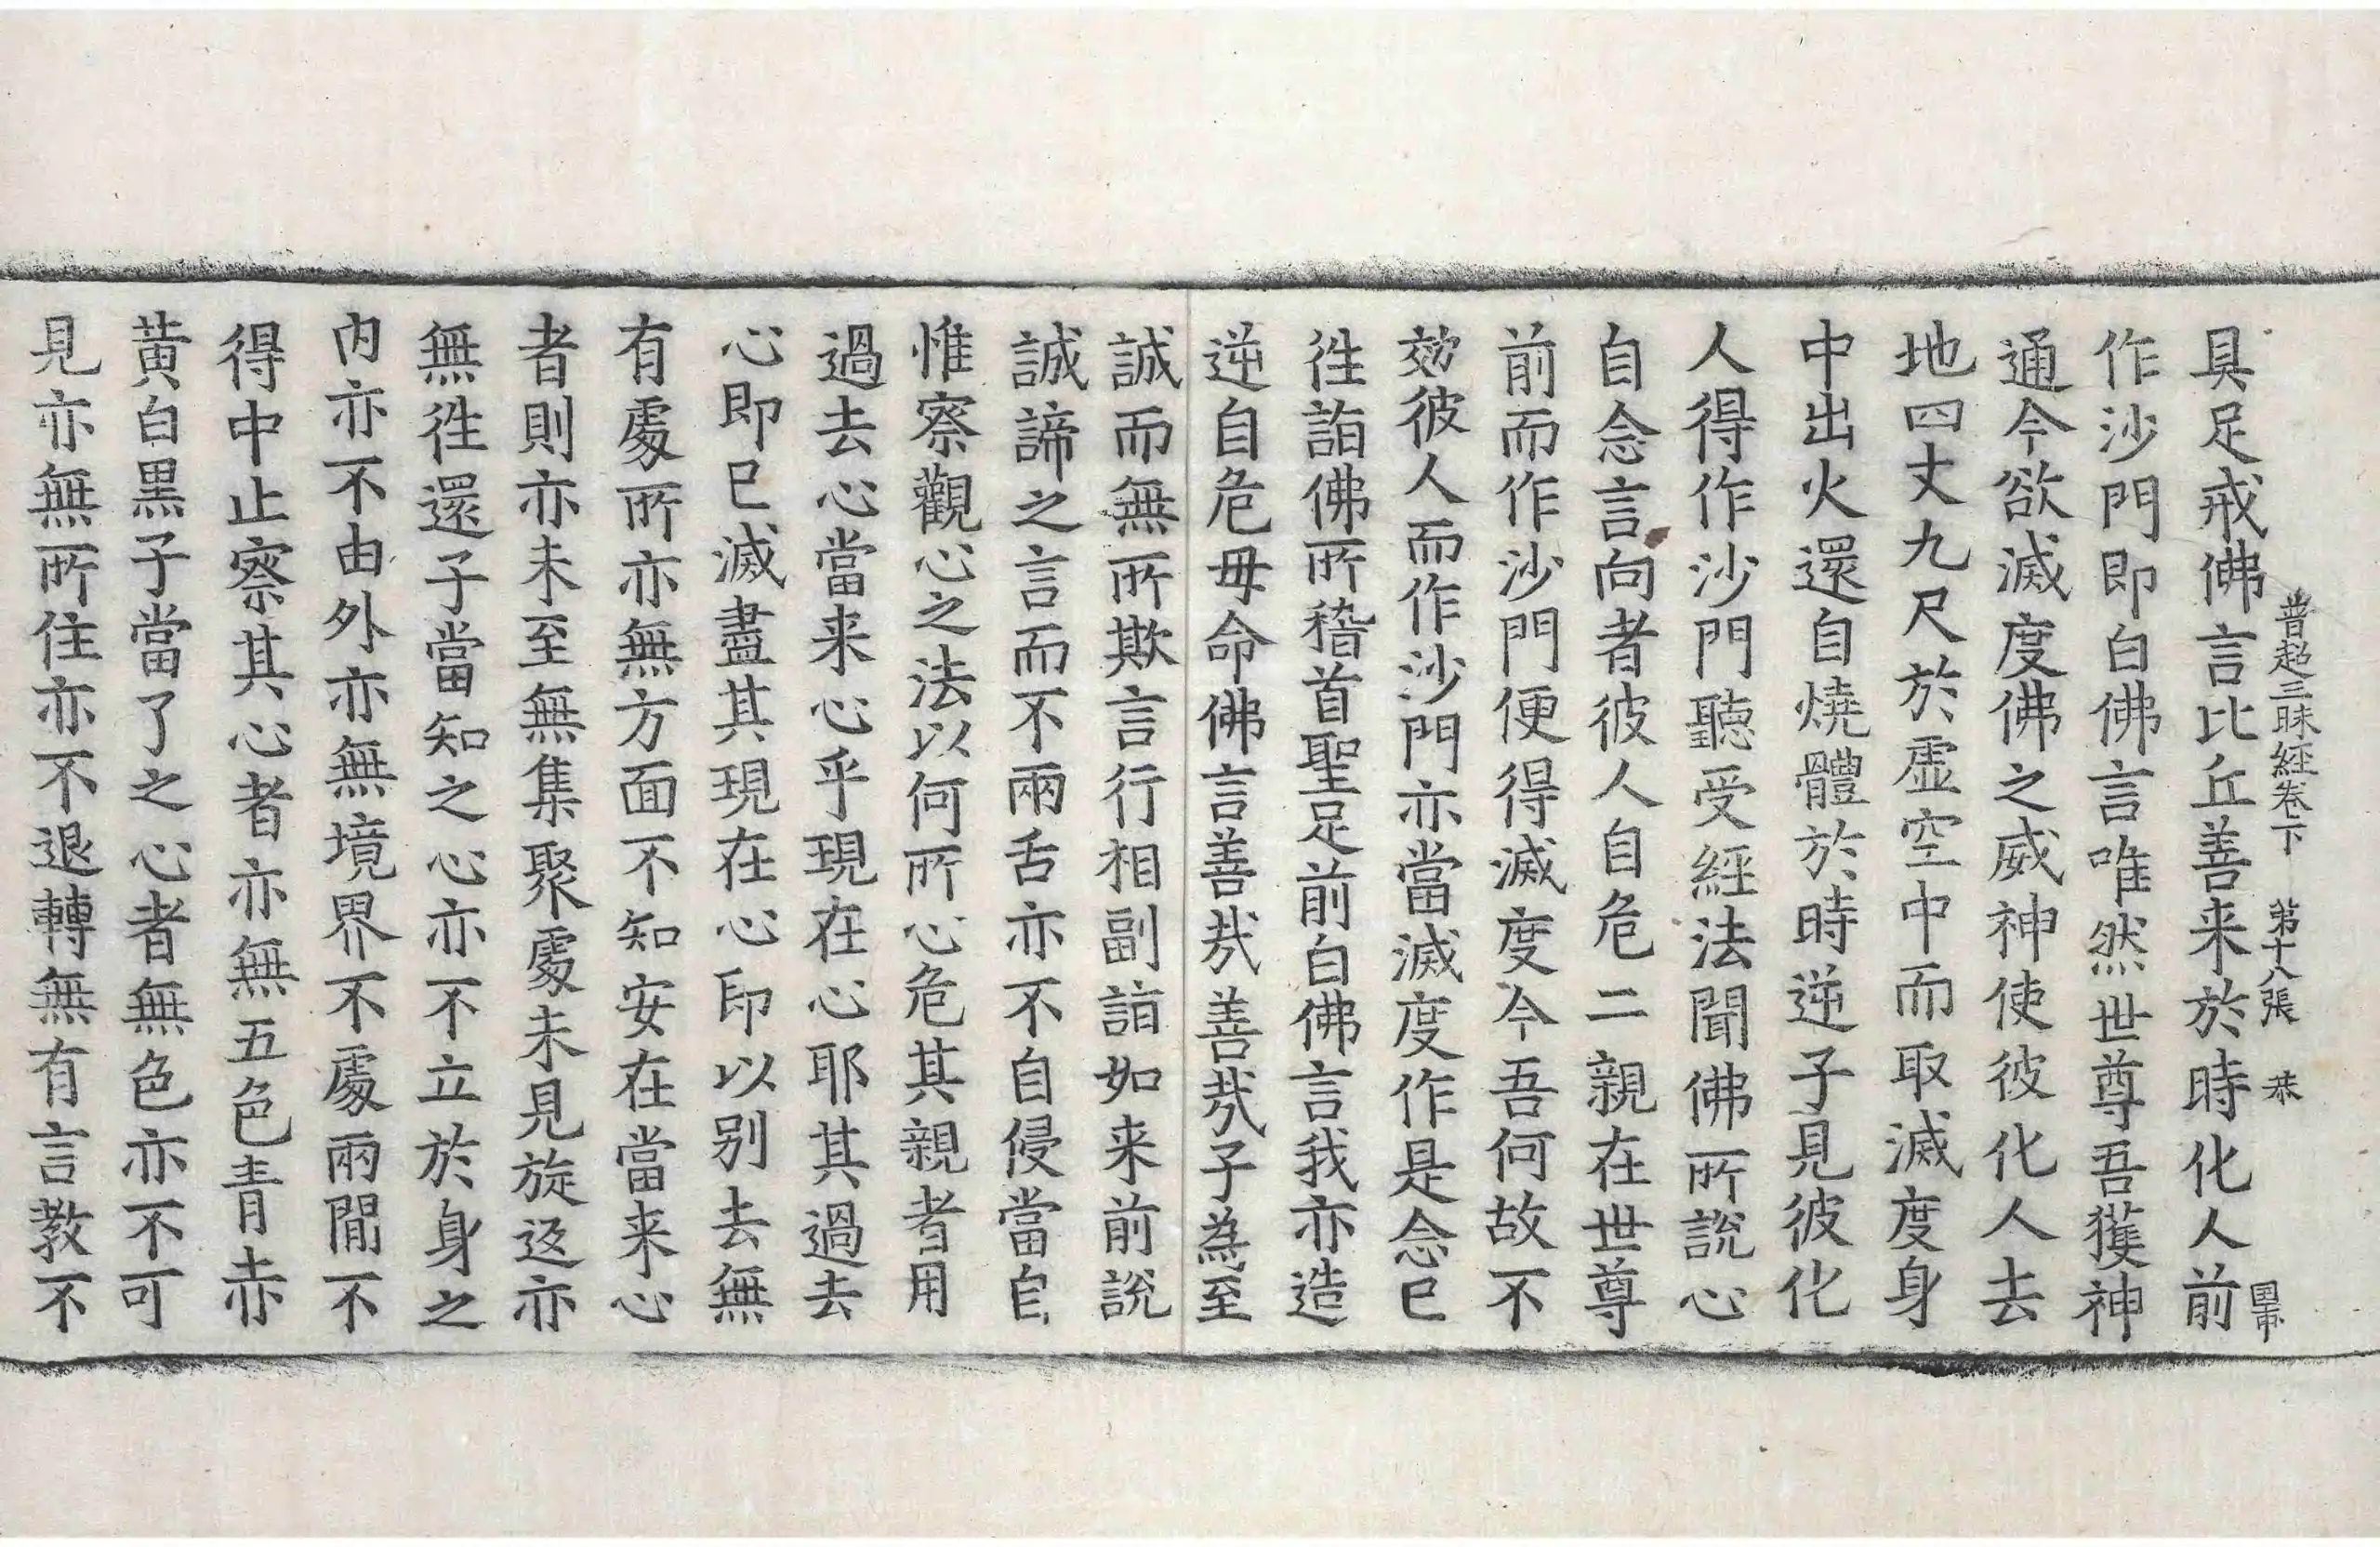 普超三昧經卷下　第十八張　恭
具足戒佛言比丘善来於時化人前
作沙門即白佛言唯然世尊吾獲神
通今欲滅度佛之威神使彼化人去
地四丈九尺於虛空中而取滅度身
中出火還自燒體於時逆子見彼化
人得作沙門聽受經法聞佛所說心
自念言向者彼人自危二親在世尊
前而作沙門便得滅度今吾何故不
効彼人而作沙門亦當滅度作是念已
徃詣佛所稽首聖足前白佛言我亦造
逆自危毋命佛言善㢤善㢤子為至
誠而無所欺言行相副詣如来前說
誠諦之言而不兩舌亦不自侵當自
惟察觀心之法以何所心危其親者用
過去心當来心乎現在心耶其過去
心即已滅盡其現在心即以别去無
有處所亦無方面不知安在當来心
者則亦未至無集聚處未見旋返亦
無徃還子當知之心亦不立於身之
内亦不由外亦無境界不處兩間不
得中止察其心者亦無五色青赤
黃白黒子當了之心者無色亦不可
見亦無所住亦不退轉無有言教不